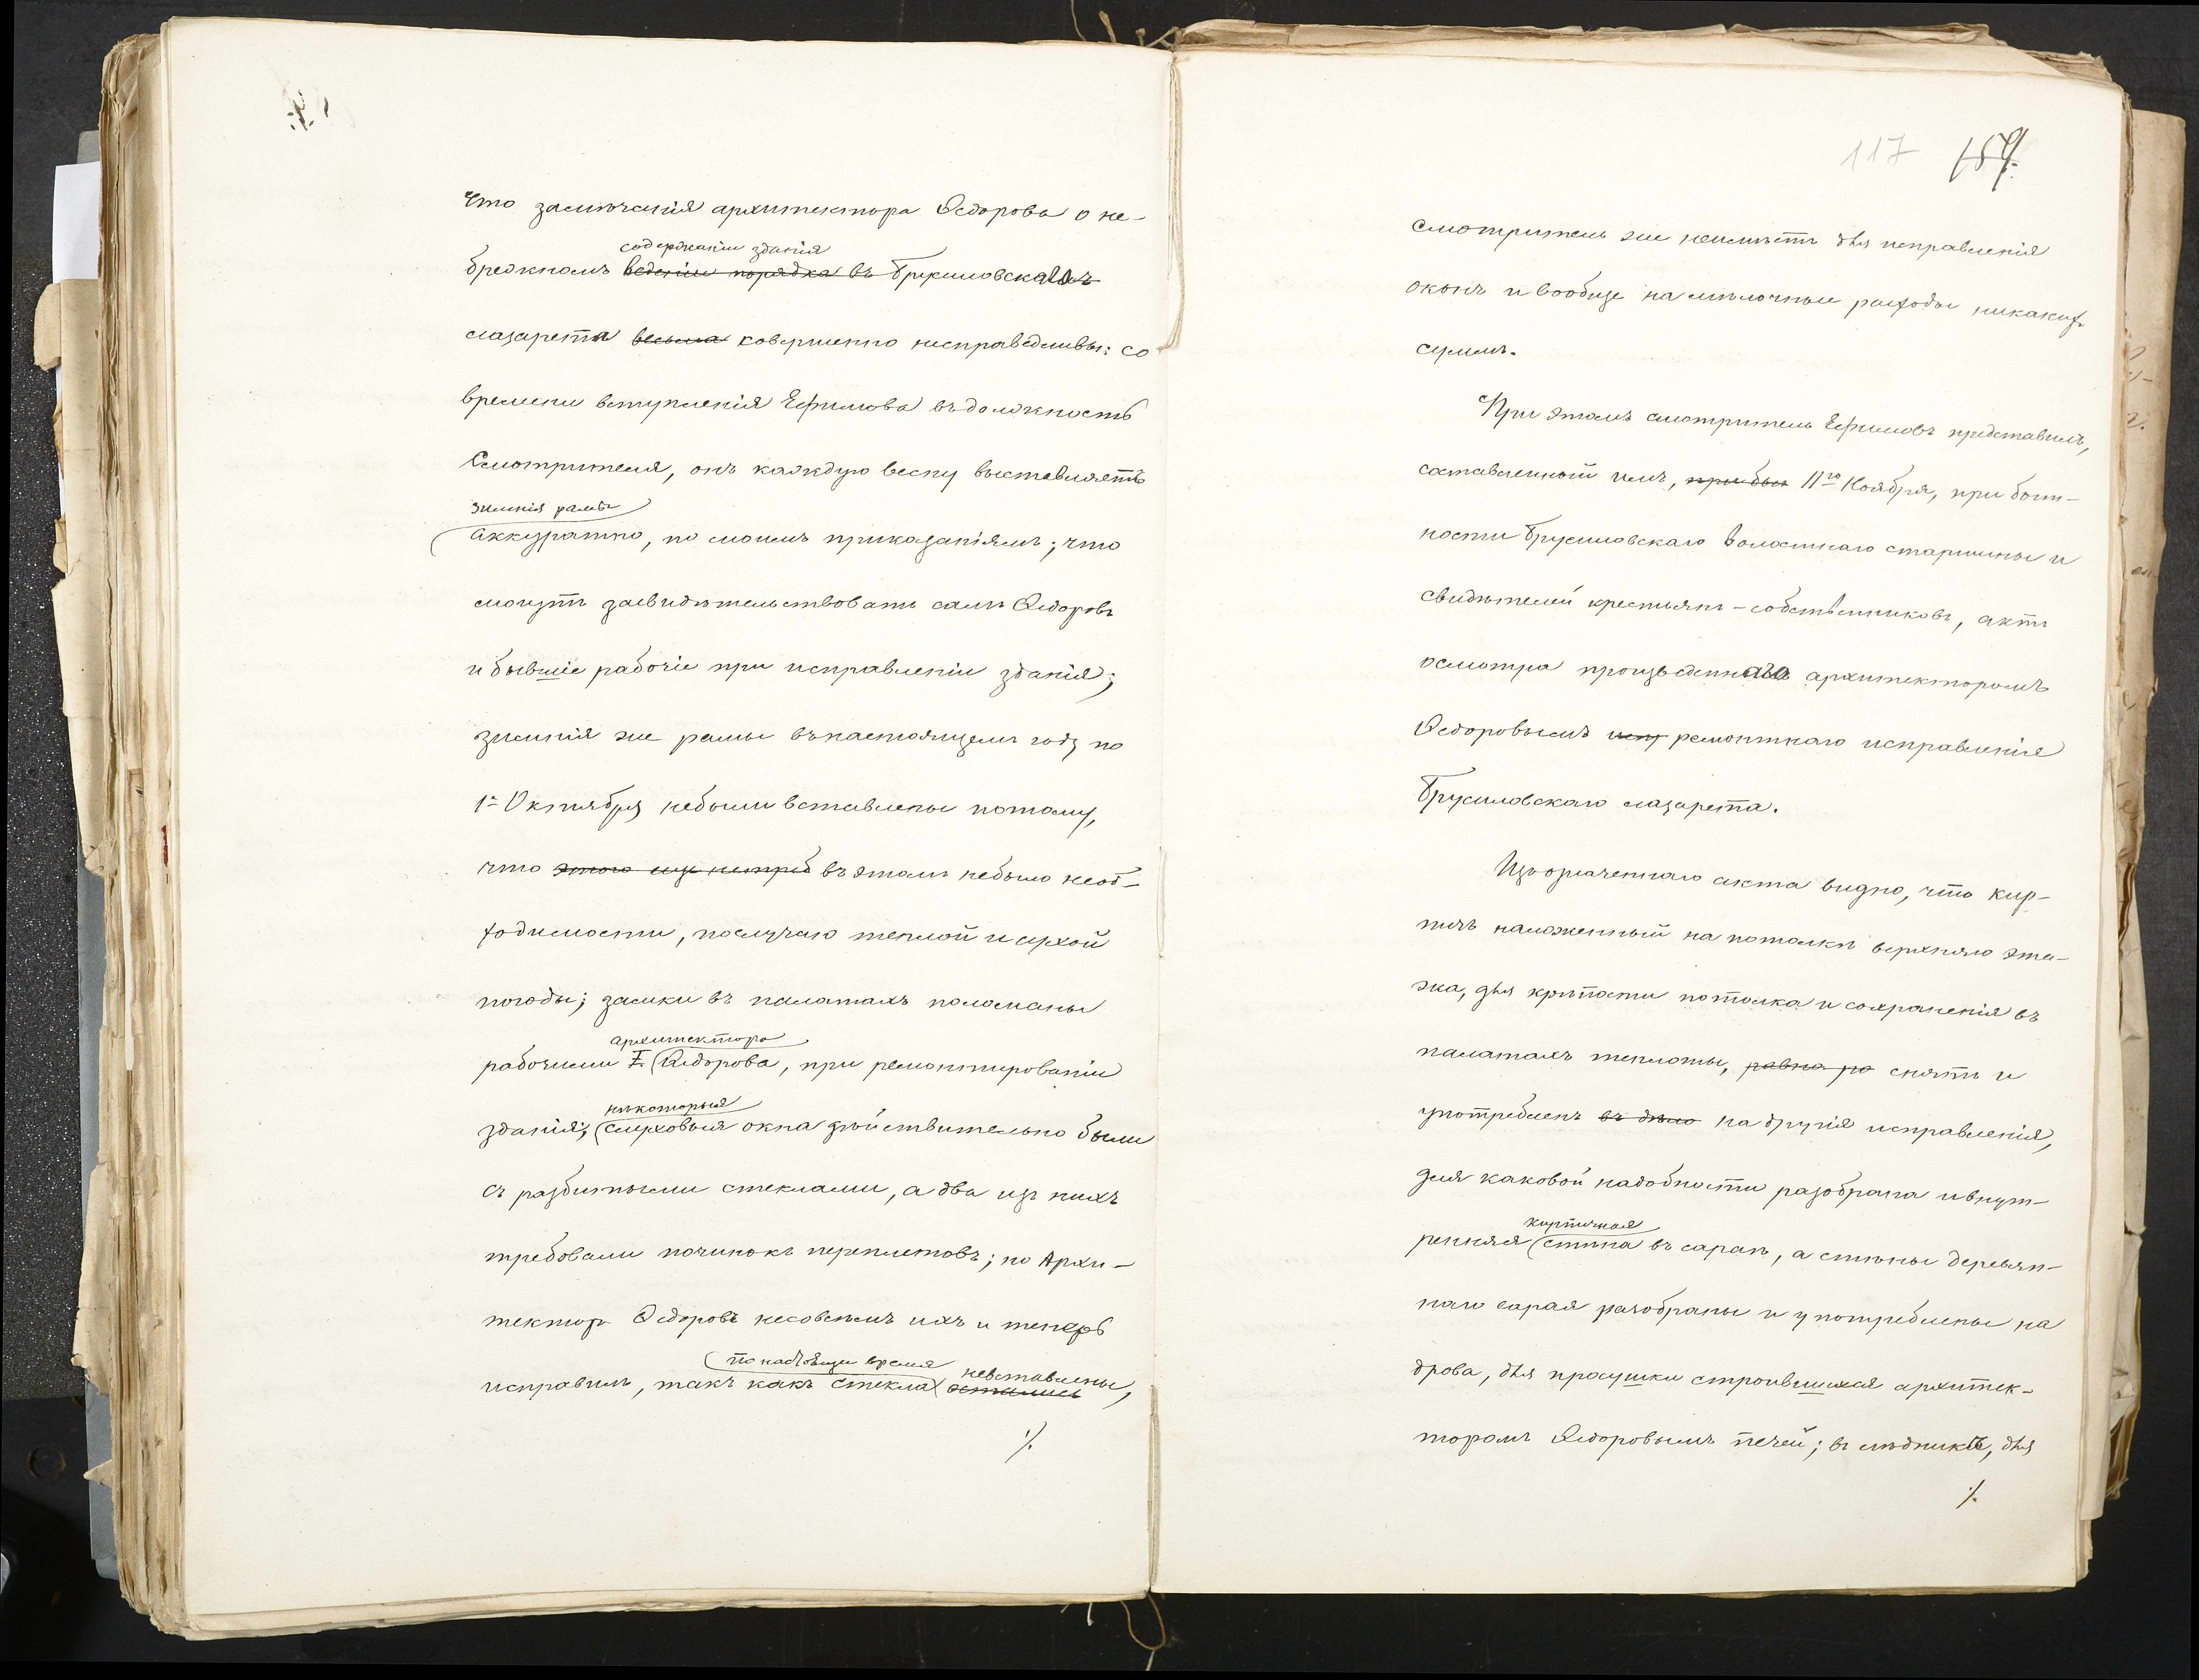 что замѣчанія архитектора Ѳедорова о не-
содержаніи зданія
брежномъ веденіи порядка въ Брусиловскаго
лазарета весьма совершенно несправедливы: со
времени вступленія Ефимова въ должность
Смотрителя, онъ каждую весну выставляетъ
зимнія рамы
аккуратно, по моимъ приказаніямъ; что
могутъ засвидѣтельствовать самъ Ѳедоровъ
и бывшіе рабочіе при исправленіи зданія;
зимнія же рамы въ настоящемъ году по
1е Октября небыли вставлены потому,
что этого еще нетреб въ этомъ небыло необ-
ходимости, послучаю теплой и сухой
погоды; замки въ палатахъ поломаны
архитектора
рабочими Г. Ѳедорова, при ремонтированіи
нѣкоторыя
зданія; слуховыя окна дѣйствительно были
съ разбитыми стеклами, а два изъ нихъ
требовали починокъ переплетовъ; но Архи-
текторъ Ѳедоровъ несовсѣмъ ихъ и теперь
по настоящее время невставлены,
исправилъ, такъ какъ стекла остались
·/.
117 157.
смотритель же неимѣетъ для исправленія
оконъ и вообще на мѣлочные расходы никакихъ
суммъ.
При этомъ смотритель Ефимовъ представилъ,
составленный имъ, при быт 11го Ноября, при быт-
ности Брусиловскаго волостнаго старшины и
свидѣтелей крестьянъ-собственниковъ, актъ
осмотра произведеннаго архитекторомъ
Ѳедоровымъ исп ремонтнаго исправленія
Брусиловскаго лазарета.
Изъ означеннаго акта видно, что кир-
пичъ наложенный на потолкѣ верхняго эта-
жа, для крѣпости потолка и сохраненія въ
палатахъ теплоты, равно ра снятъ и
употребленъ въ дѣло на другія исправленія,
для каковой надобности разобрана и внут-
кирпичная
ренняя стѣна въ сараѣ, а стѣны деревян-
наго сарая разобраны и употреблены на
дрова, для просушки строившихся архитек-
торомъ Ѳедоровымъ печей; въ ледникѣ, для
·/.